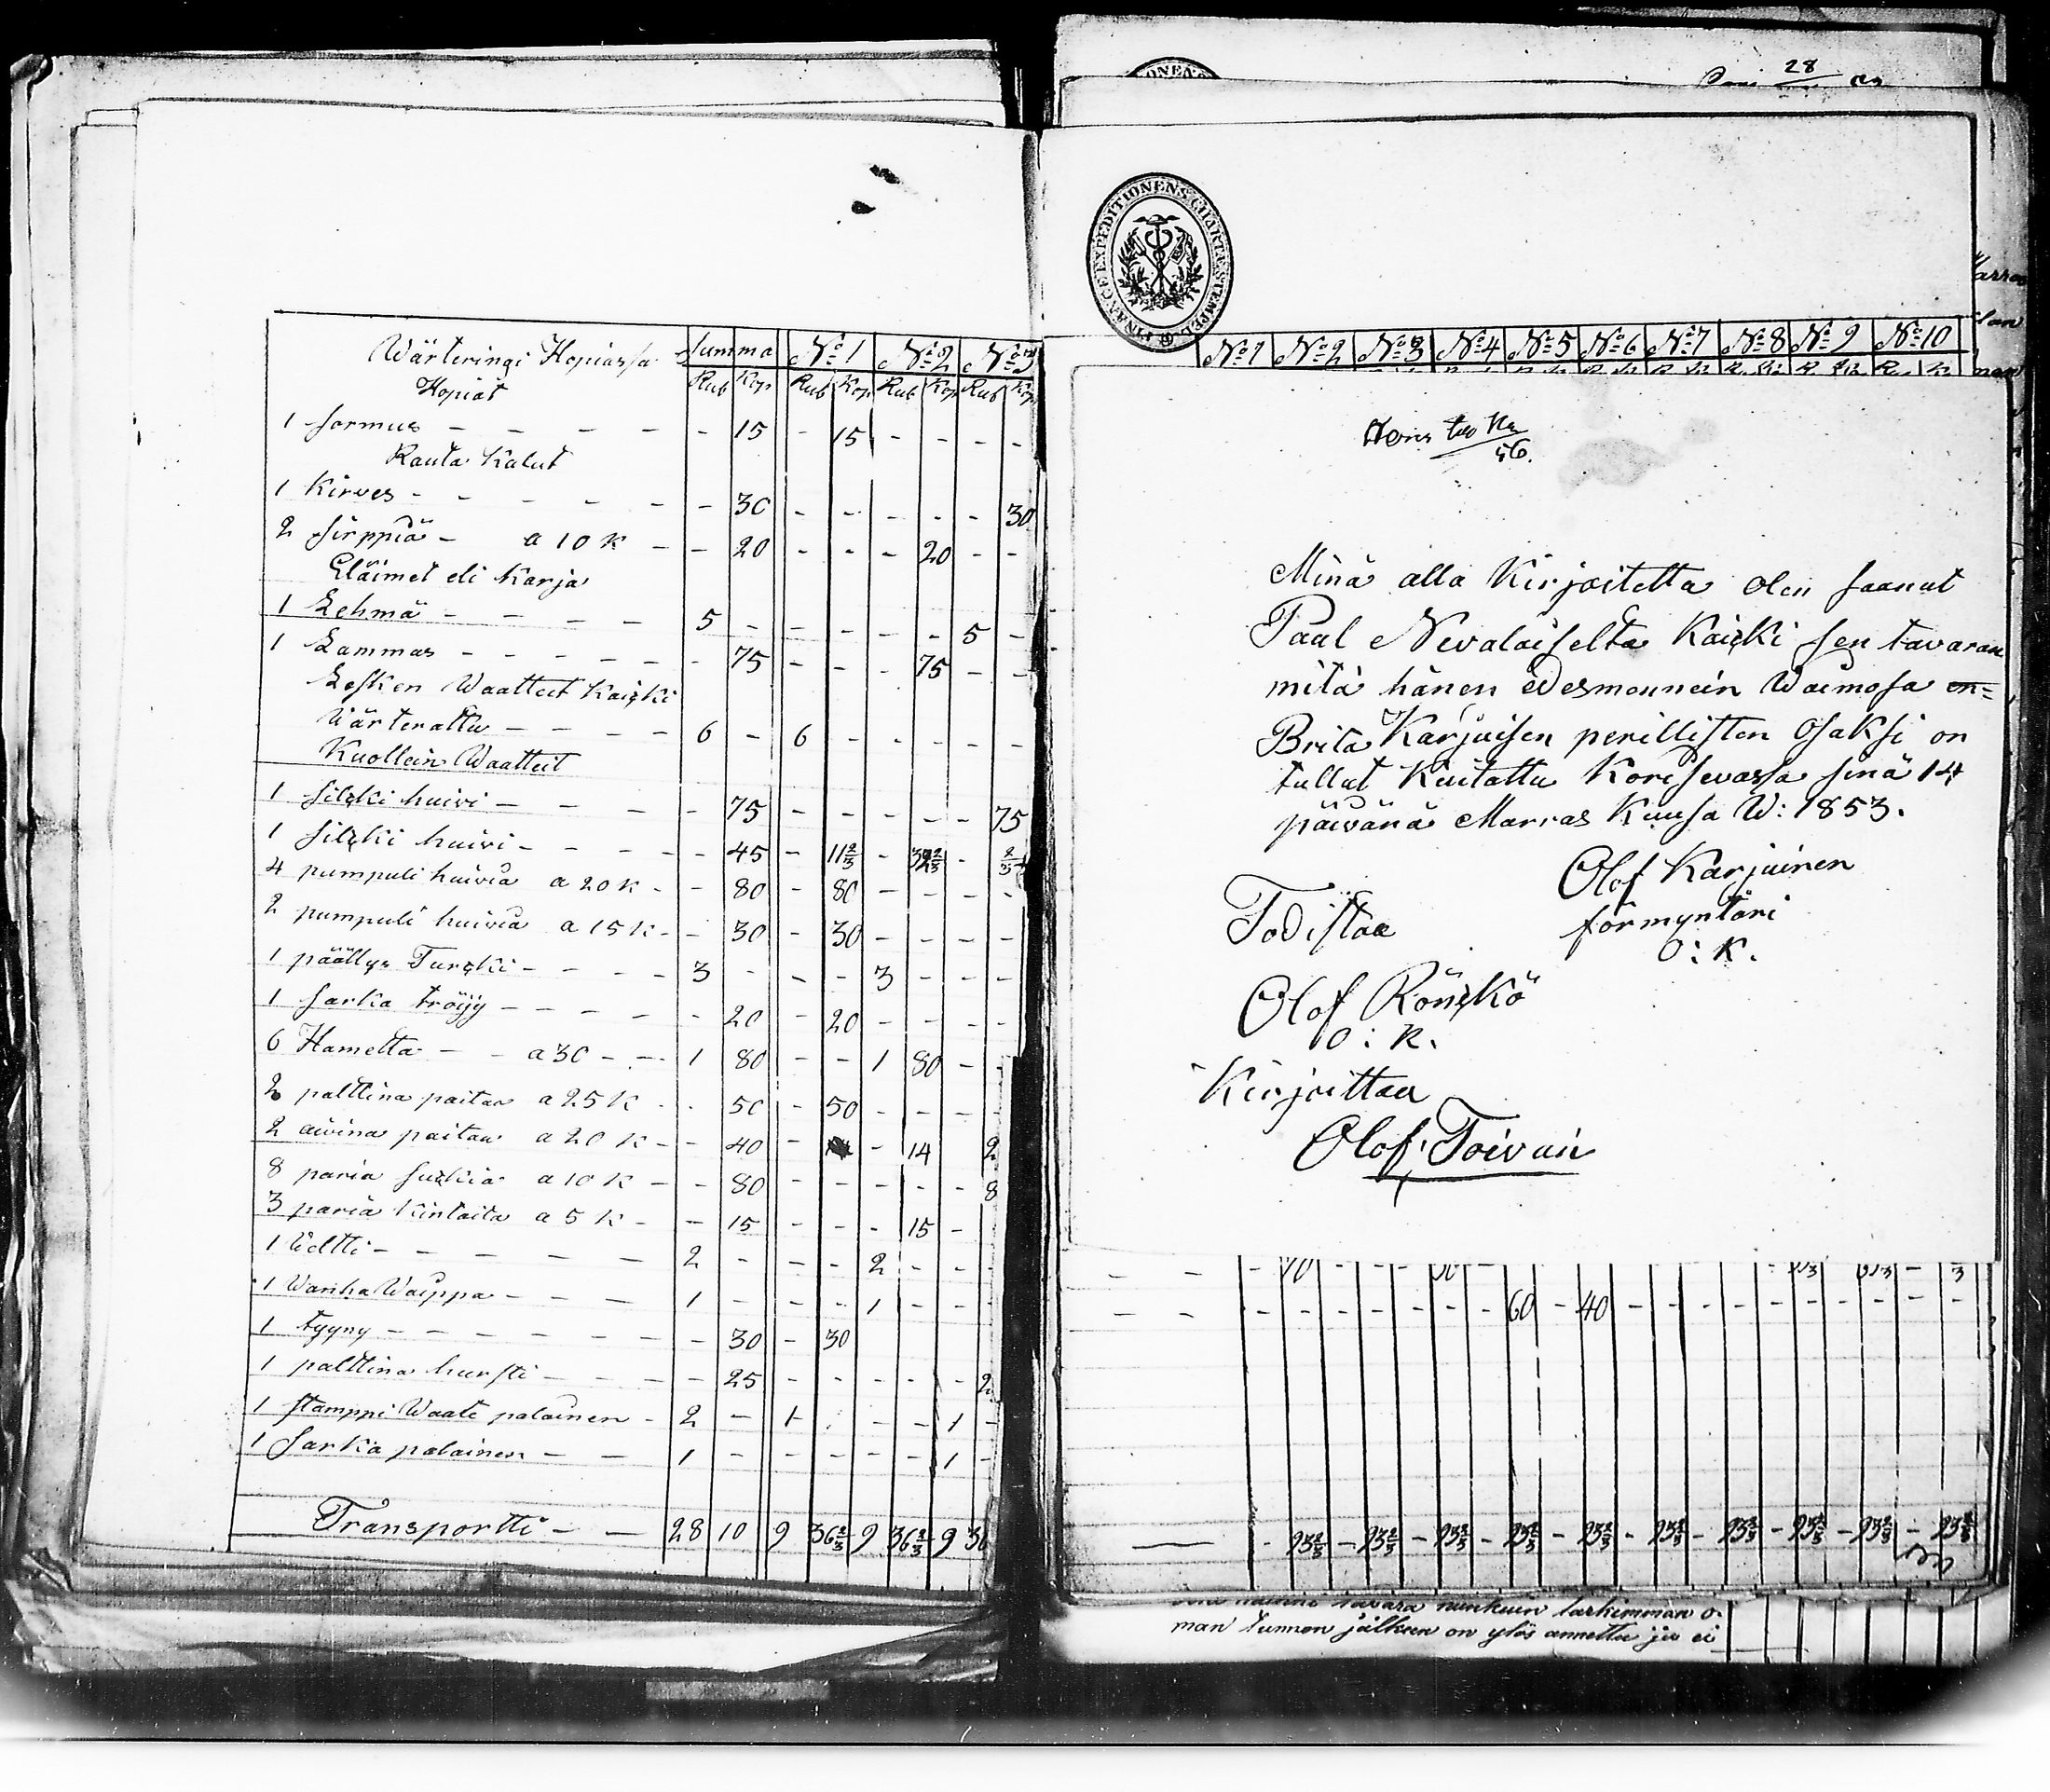 Wärteringi Hopiassa Summa No 1 No 2 No 3
Hopiat Rub Kop Rub Kop Rub Kop Rub Kop
1 sormus - - - - - - 15 - 15 - - - -
Rauta Kalut
1 Kirves - - - - - - 30 - - - - - 30
2 sirppiä - a 10 K - - 20 - - - 20 - -
Eläimet eli Karja
1 Lehmä - - - - 5 - - - - - 5 -
1 Lammas - - - - - - 75 - - - 75 - -
Lesken Waatteet Kaicki
Wärterattu - - - - 6 - 6 - - - - -
Kuollein Waatteet
1 silcki huivi - - - - 75 - - - - - 75
1 silcki huivi - - - - - 45 - 11 2/3 - -
4 pumpuli huivia a 20 K - - 80 - 80 - - - -
2 pumpuli huivia a 15 K - - 30 - 30 - - - -
1 päällys Turcki - - - - 3 - - - 3 - - -
1 sarka tröijy - - - - - 20 - 20 - - - -
6 Hametta - - a 30 - - 1 80 - - 1 80 - -
2 palttina paitaa a 25 K - - 50 - 50 - - - -
2 aivina paitaa a 20 K - - 40 - - 14 2
8 paria suckia a 10 K - - 80 - - - - - 8
3 pariä Kintaita a 5 K - - 15 - - - 15 -
1 - - - - - 2 - - - 2 - - -
1 Wanha Waippa - - - 1 - - - 1 - - -
1 tyyny - - - - - - 30 - 30
1 palttina hursti - - - - 25 - - - - - 2
1 stamppi Waate palainen - 2 - 1 - - - 1 -
1 Sarka palainen - - 1 - - - - - 1 -
Transportti - - 28 10 9 36 2/3 9 36 2/3 9 36
28
FINANCE EXPEDITIONENS CHARTÆ STEMPEL
No 1 No 2 No 3 No 4 No 5 No 6 No 7 No 8 No 9 No 10
56.
Minä alla Kirjoitettu olen saanut
Paul Nevalaiselta Kaicki sen tavaran
mitä hänen edesmennein Waimosa en=
Brita Karjuisen perillisten Osaksi on
tullut Kuitattu Korisevassa sinä 14
päivänä Marras Kuusa W: 1853.
Olof Karjuinen
förmyntäri
O: K.
Todistaa
Olof Rönckö
O: K.
Kirjoittaa
Olof Toivain
- - - - - - - - 60 - 40 - - - - - - - - -
- 93 2/3 - 93 2/3 - 93 2/3 - 93 2/3 - 93 2/3 - 93 2/3 - 93 2/3 - 93 2/3 - 93 2/3 - 93 2/3
tavara niinkuin tarkimman o-
man tunnon jälkeen on ylös annettu ja ei